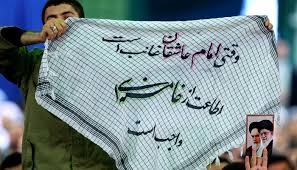 وقتی امام عاشقان غائب است
اطاعت از خامنه‌ای
واجب است